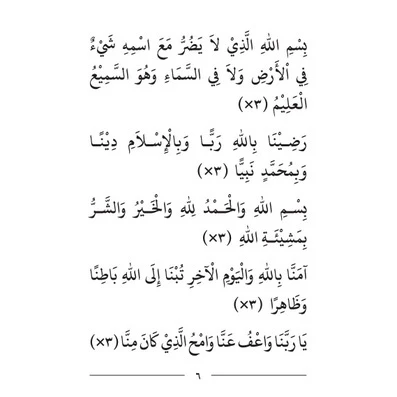 بِسْمِ اللهِ الَّذِيْ لاَ يَضُرُّ مَعَ اسْمِهِ شَيْءٌ
فِي اْلأَرْضِ وَلاَ فِي السَّمَاءِ وَهُوَ السَّمِيْعُ
الْعَلِيْمُ (٣×)
رَضِيْنَا بِاللهِ رَبًّا وَبِالْإِسْلاَمِ دِيْنًا
وَبِمُحَمَّدٍ نَبِيًّا (٣×)
بِسْمِ اللهِ وَالْحَمْدُ لِلهِ وَالْخَيْرُ وَالشَّرُّ
بِمَشِيْئَةِ اللهِ (٣×)
آمَنَّا بِاللهِ وَالْيَوْمِ الْآخِرِ تُبْنَا إِلَى اللهِ بَاطِنًا
وَظَاهِرًا (٣×)
يَا رَبَّنَا وَاعْفُ عَنَّا وَامْحُ الَّذِيْ كَانَ مِنَّا (٣×)
٦